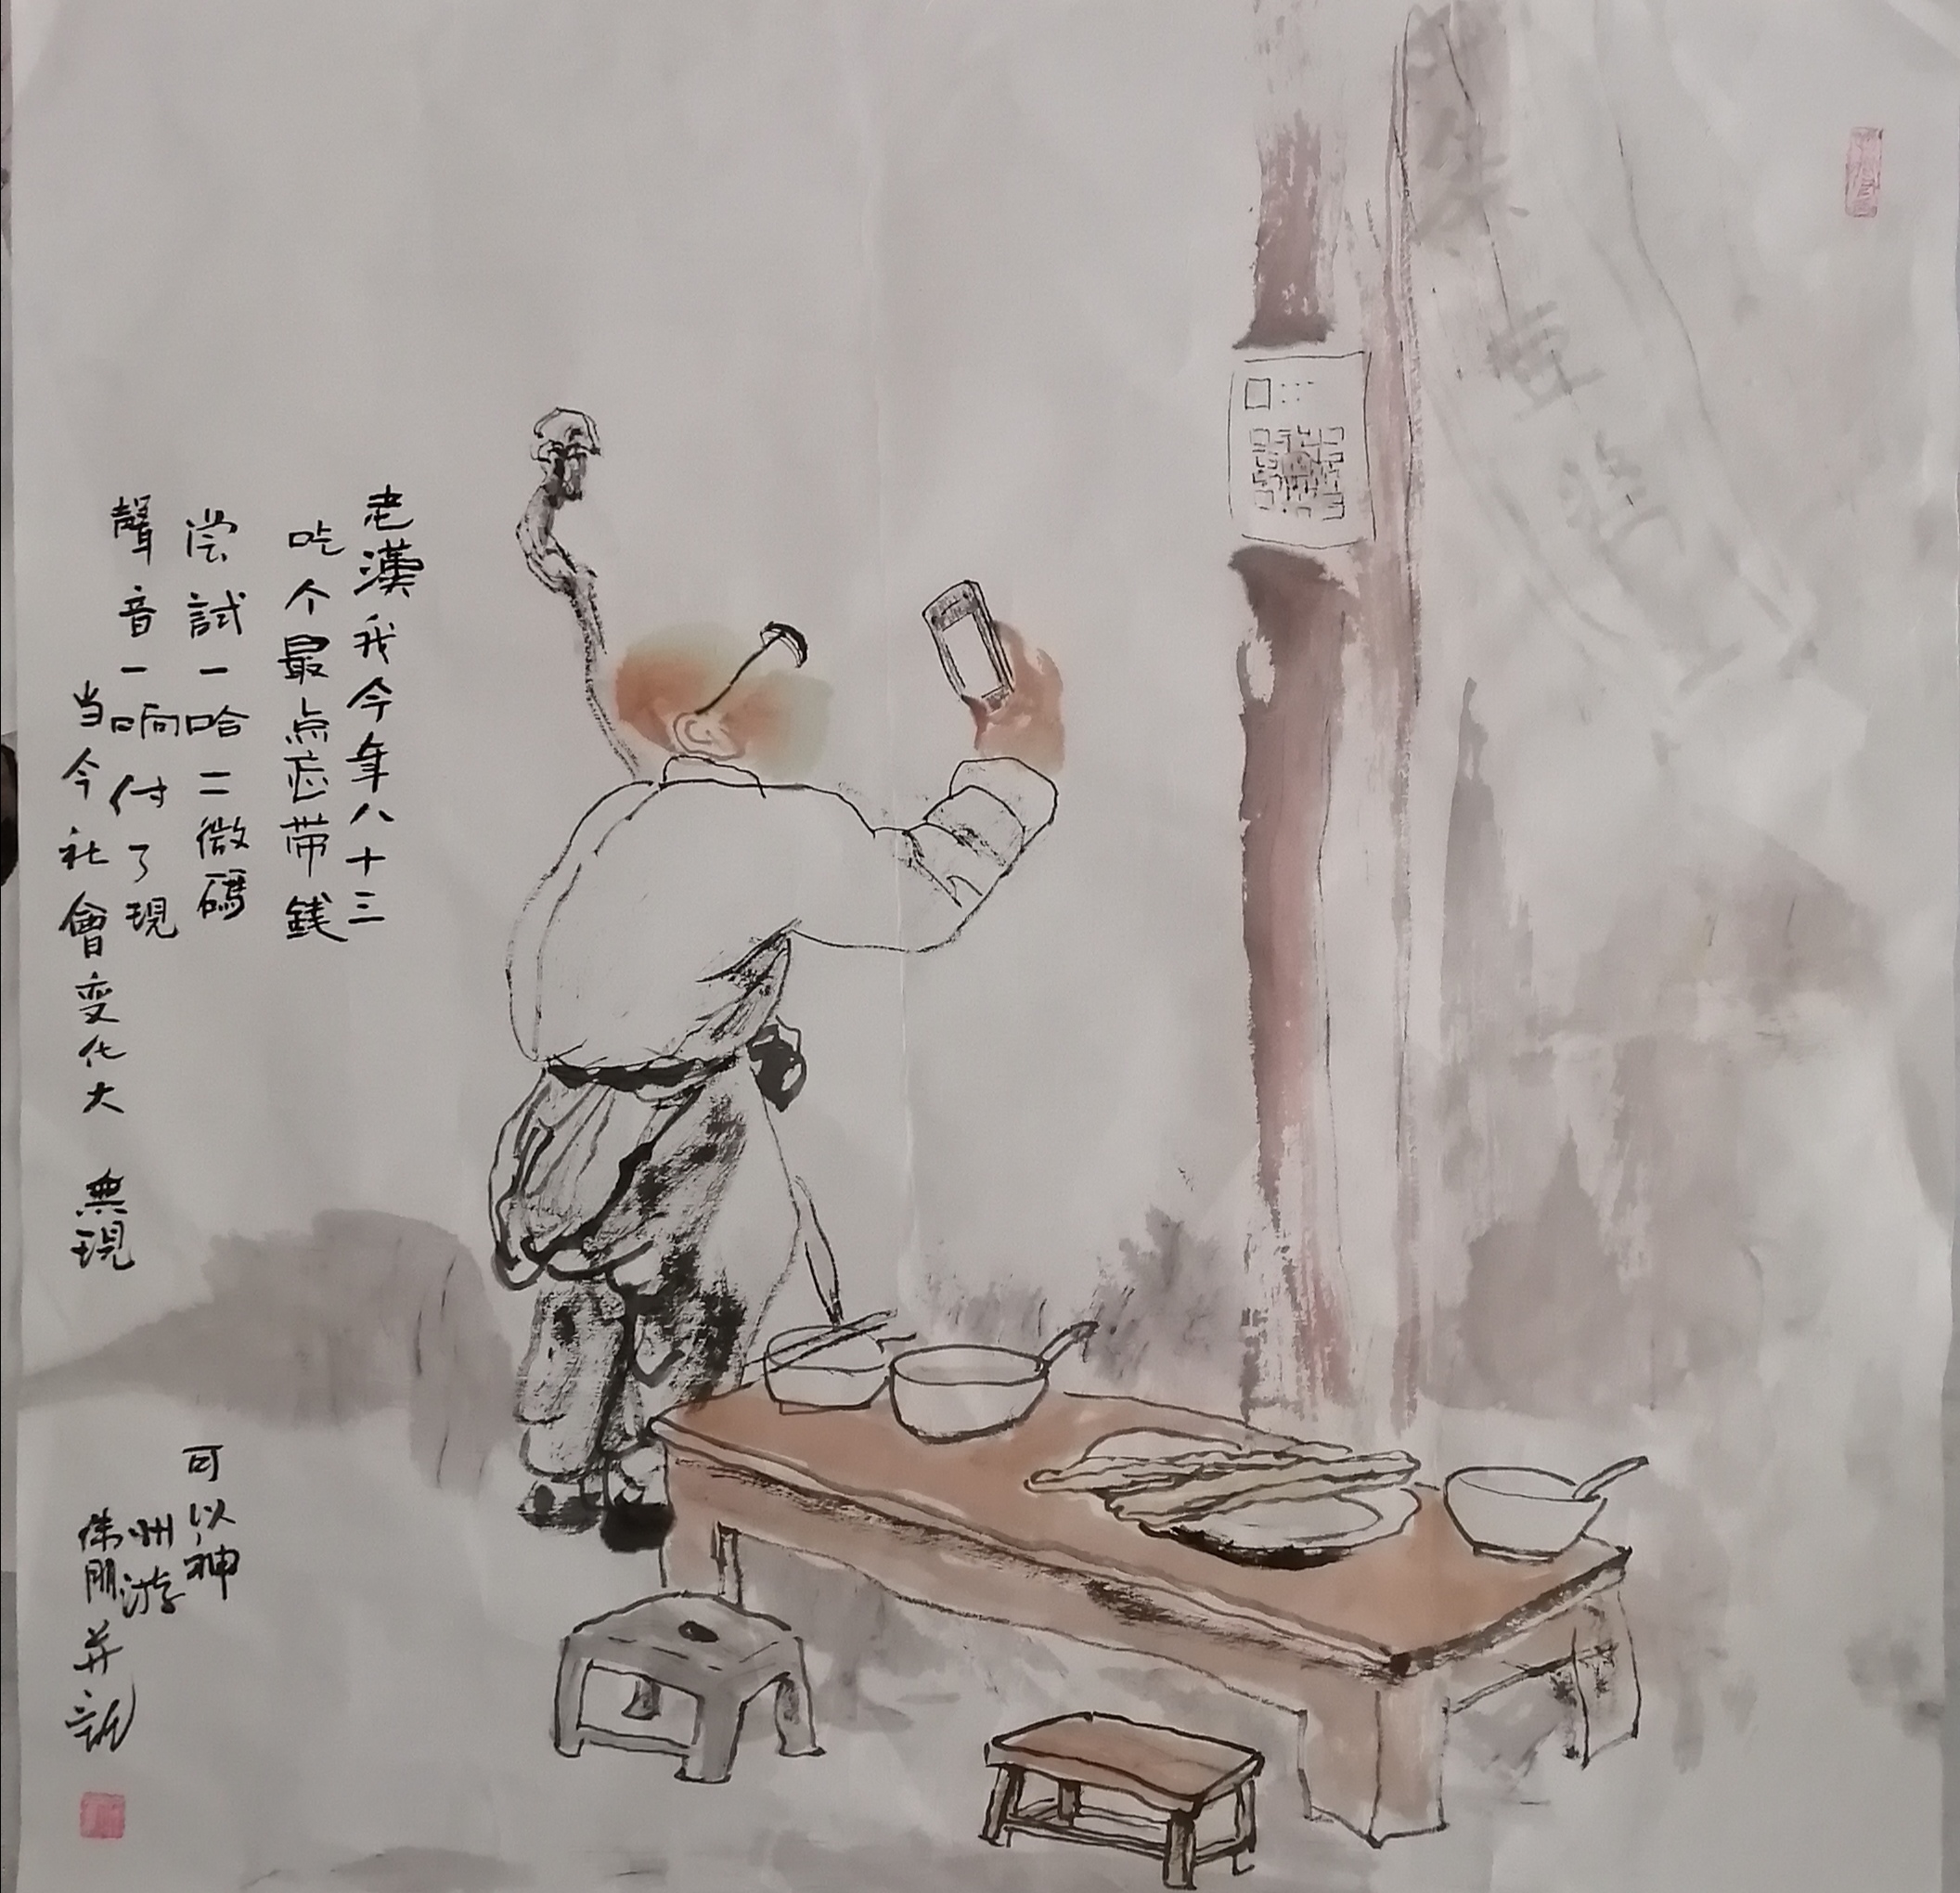 老漢我今年八十三
吃个最点忘带錢
尝試一哈二微碼
聲音一响付了現
当今社會变化大 無現
可以神
州游
朋并記